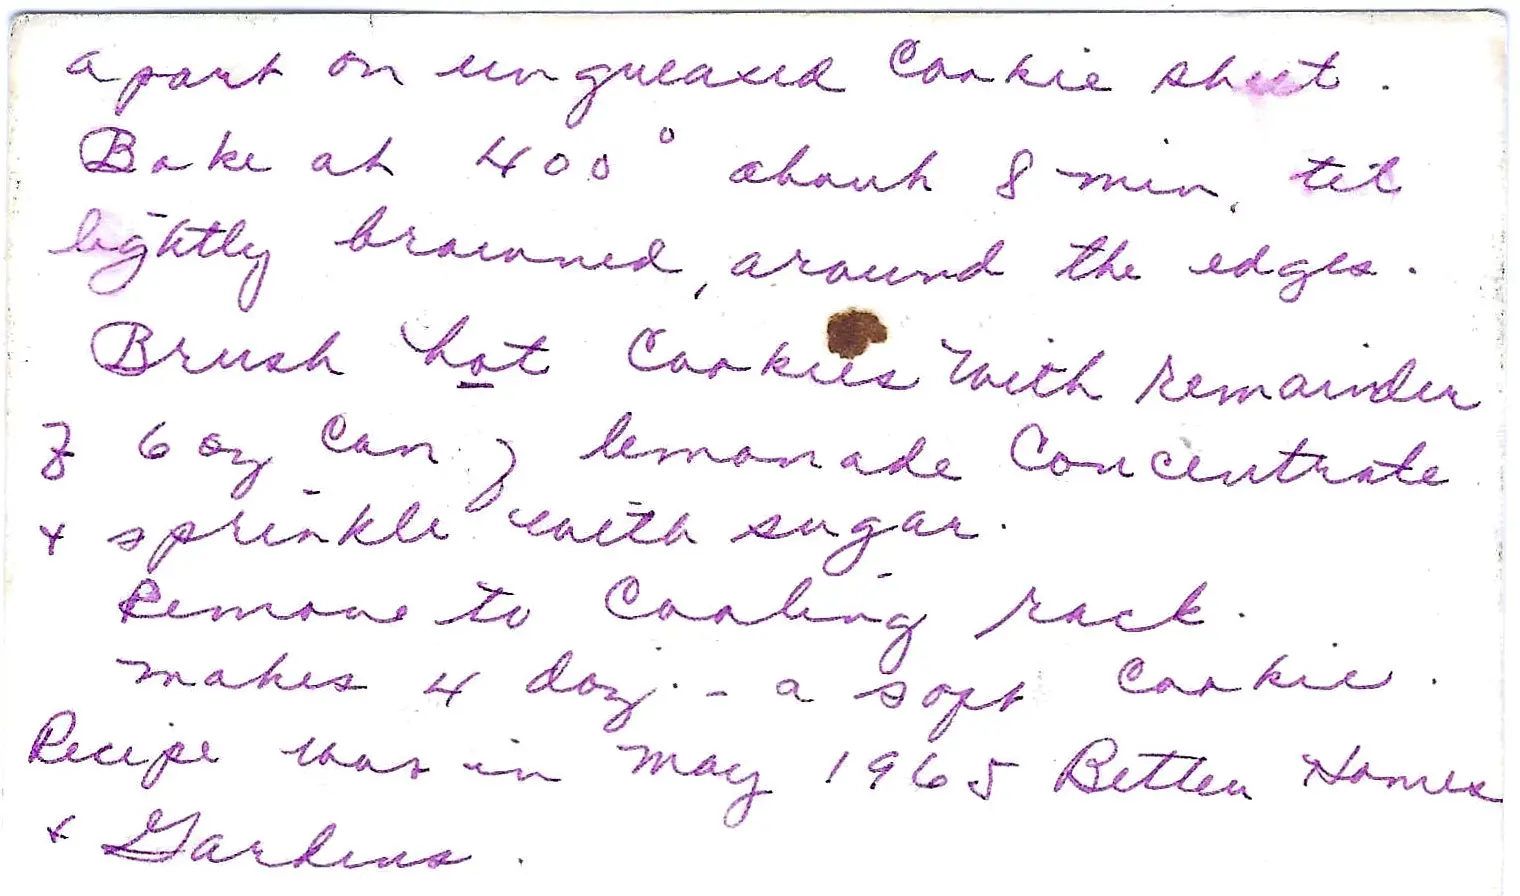 apart on ungreased Cookie sheet.
Bake at 400° about 8 min, til
lightly browned, around the edges.
Brush hot Cookies with remainder
of 6 oz can of lemonade Concentrate
+ sprinkle with sugar.
Remove to Cooling rack.
makes 4 doz. - a soft Cookie.
Recipe was in May 1965 Better Homes
+ Gardens.